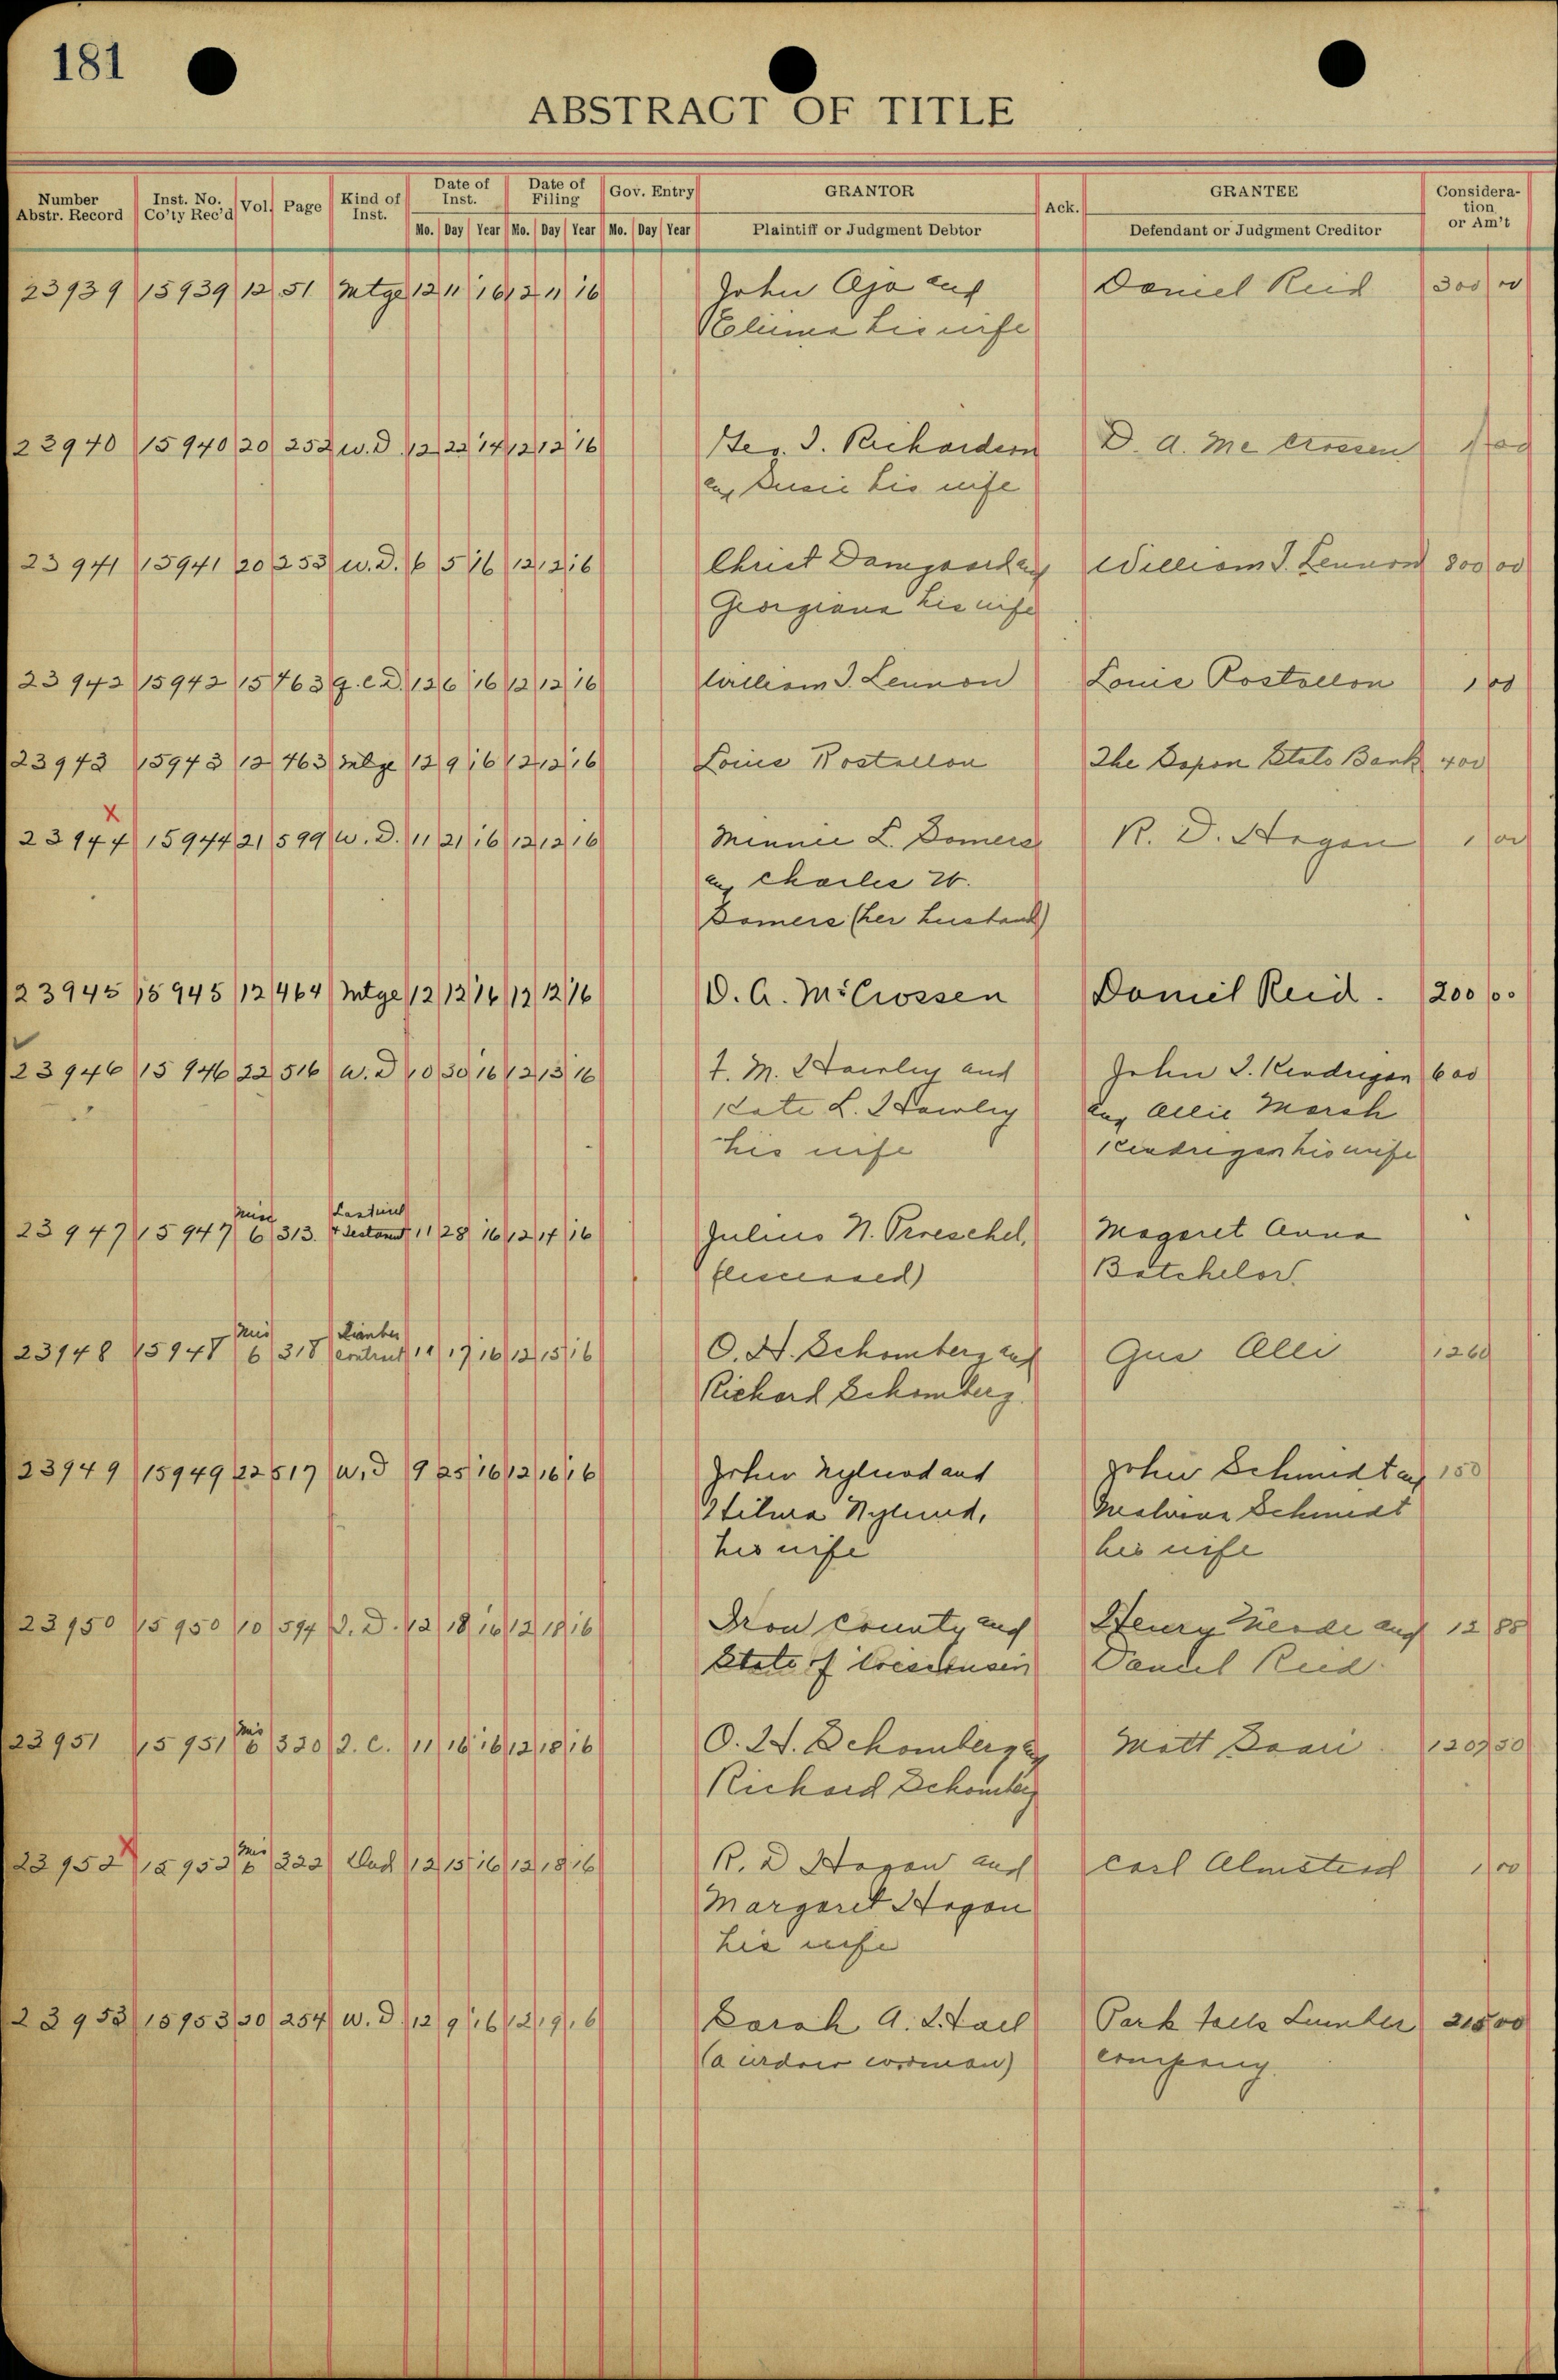 181
ABSTRACT OF TITLE
Number Abstr. Record Inst. No. Co'ty Rec'd Vol. Page Kind of Inst. Date of Inst. Date of Filing Gov. Entry GRANTOR Ack. GRANTEE Consideration or Am't
Mo. Day Year Mo. Day Year Mo. Day Year Plaintiff or Judgment Debtor Defendant or Judgment Creditor
23939 15939 12 51 Mtge 12 11 16 12 11 16 John Aja and Daniel Reid 300 00
his wife
23940 15940 20 252 W.D. 12 22 14 12 12 16 Geo. I. Richardson D. A. Mc Crossen 1 00
and Susie his wife
23941 15941 20 253 W.D. 6 5 16 12 12 16 Christ Damgaard and William J. Lennon 800 00
Georgiana his wife
23942 15942 15 463 Q.C.D. 12 6 16 12 12 16 William J. Lennon Louis Rostollon 1 00
23943 15943 12 463 Mtge 12 9 16 12 12 16 Louis Rostollon The Saxon State Bank 400
X
23944 15944 21 599 W.D. 11 21 16 12 12 16 Minnie L. Somers R. D. Hogan 1 00
and Charles W.
Somers (her husband)
23945 15945 12 464 Mtge 12 12 16 12 12 16 D. A. McCrossen Daniel Reid. 200 00
23946 15946 22 516 W.D 10 30 16 12 13 16 F. M. Hawley and John I. Kendrigan 600
Kate L. Hawley and Allie Marsh
his wife Kendrigan his wife
23947 15947 Misc 6 313. Last will & Testament 11 28 16 12 14 16 Julius N. Proeschel, Magaret Anna
(deceased) Batchelor.
23948 15948 Mis 6 318 contract 11 17 16 12 15 16 O. H. Schomberg and Gus Alli 1260
Richard Schomberg.
23949 15949 22 517 W.D 9 25 16 12 16 16 John Nylund and John Schmidt and 150
Hilma Nylund, Malvina Schmidt
his wife his wife
23950 15950 10 594 D. 12 18 16 12 18 16 Iron County and Henry and 12 88
State of Wisconsin Daniel Reid.
23951 15951 Mis 6 320 C. 11 16 16 12 18 16 O. H. Schomberg and Matt Saari 1207 50
Richard Schomberg
X
23952 15952 Mis 6 322 12 15 16 12 18 16 R. D Hogan and Carl Almsteed 1 00
Margaret Hogan
his wife
23953 15953 20 254 W.D. 12 9 16 12 19 16 Sarah A. Hall Park Falls Lumber 215 00
(a widow woman) company.